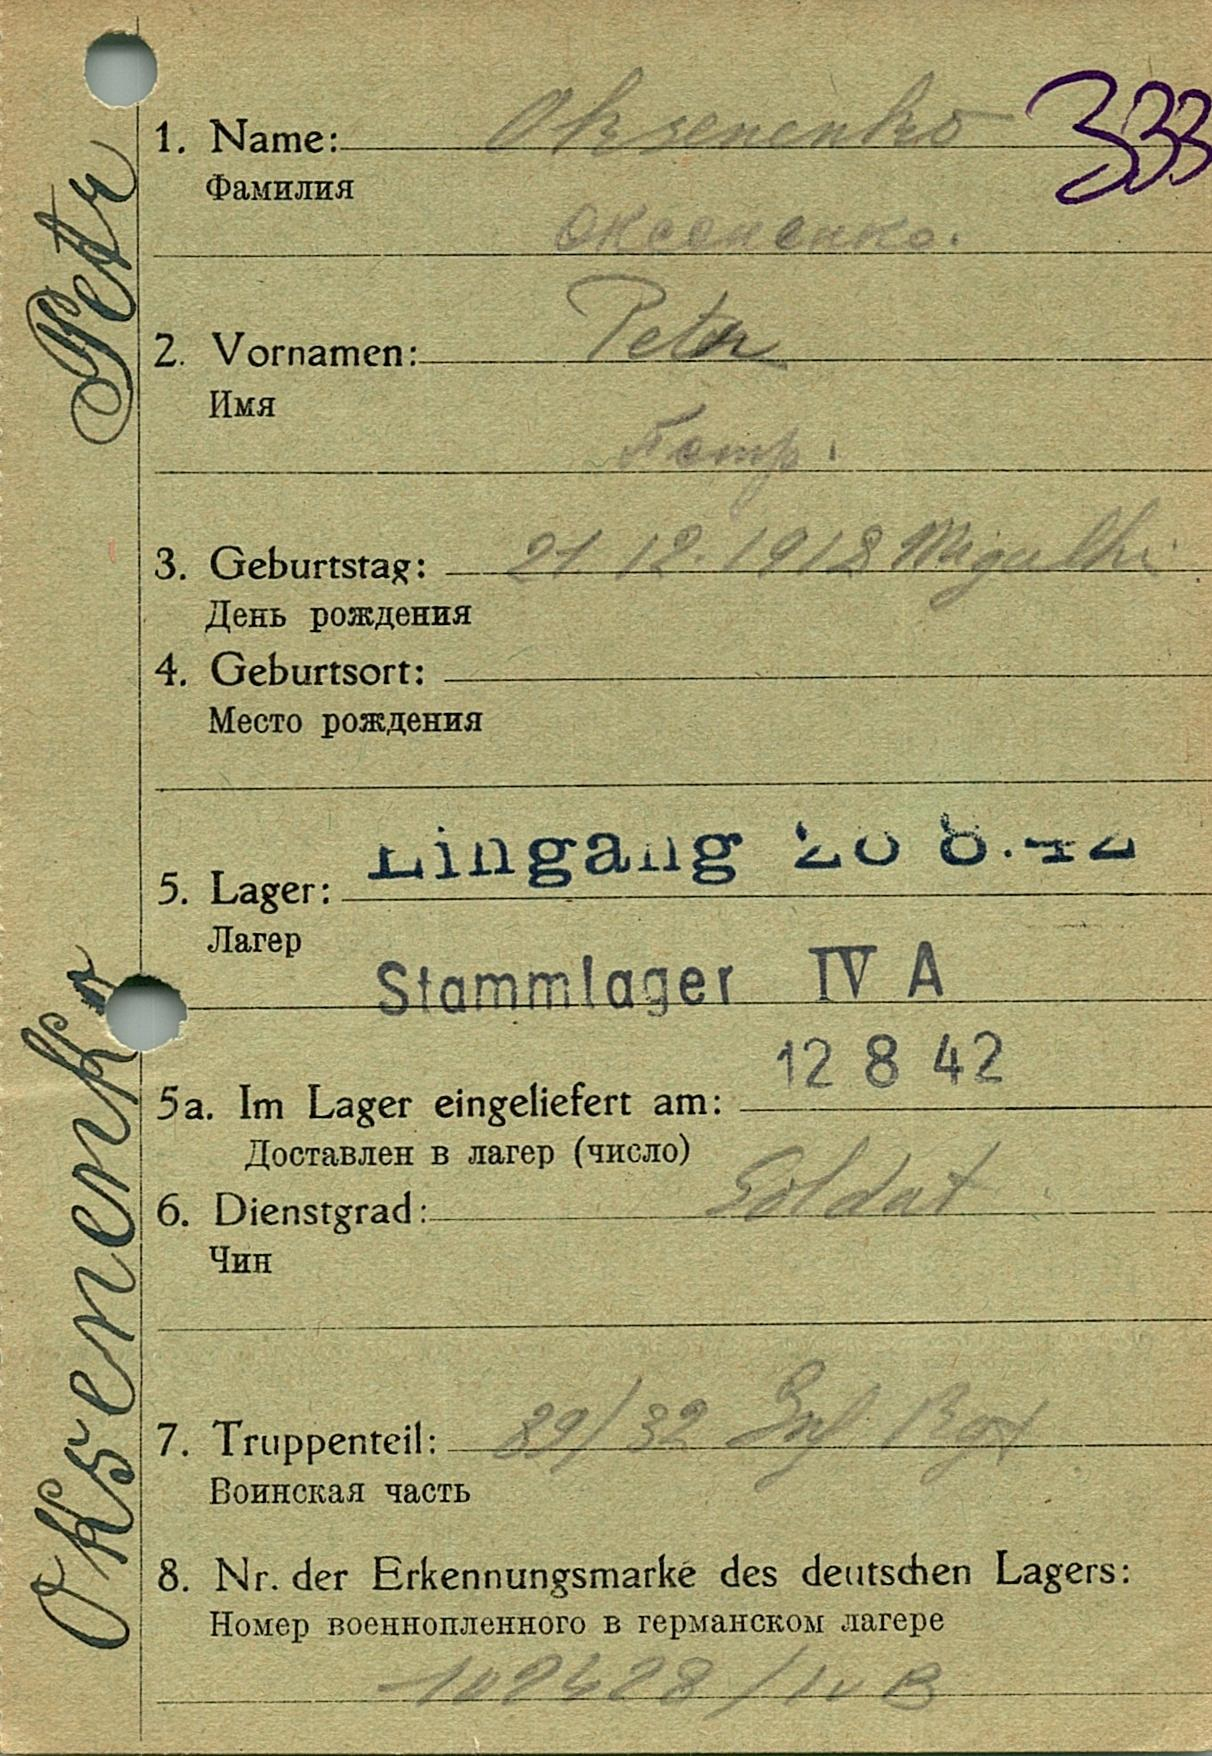 1. Name: Oksenenko 333
Фамилия
Оксененко.
2. Vornamen: Petr
Имя
Петр.
3. Geburtstag: 21 12. 1918 Migulki
День рождения
4. Geburtsort:
Место рождения
Eingang 20 8.42
5. Lager:
Лагер
Stammlager IV A
12 8 42
5a. Im Lager eingeliefert am:
Доставлен в лагер (число)
6. Dienstgrad: Soldat
Чин
7. Truppenteil: 39/32 Inf Rgt
Воинская часть
8. Nr. der Erkennungsmarke des deutschen Lagers:
Номер военнопленного в германском лагере
102428/IV B
Oksenenko Petr